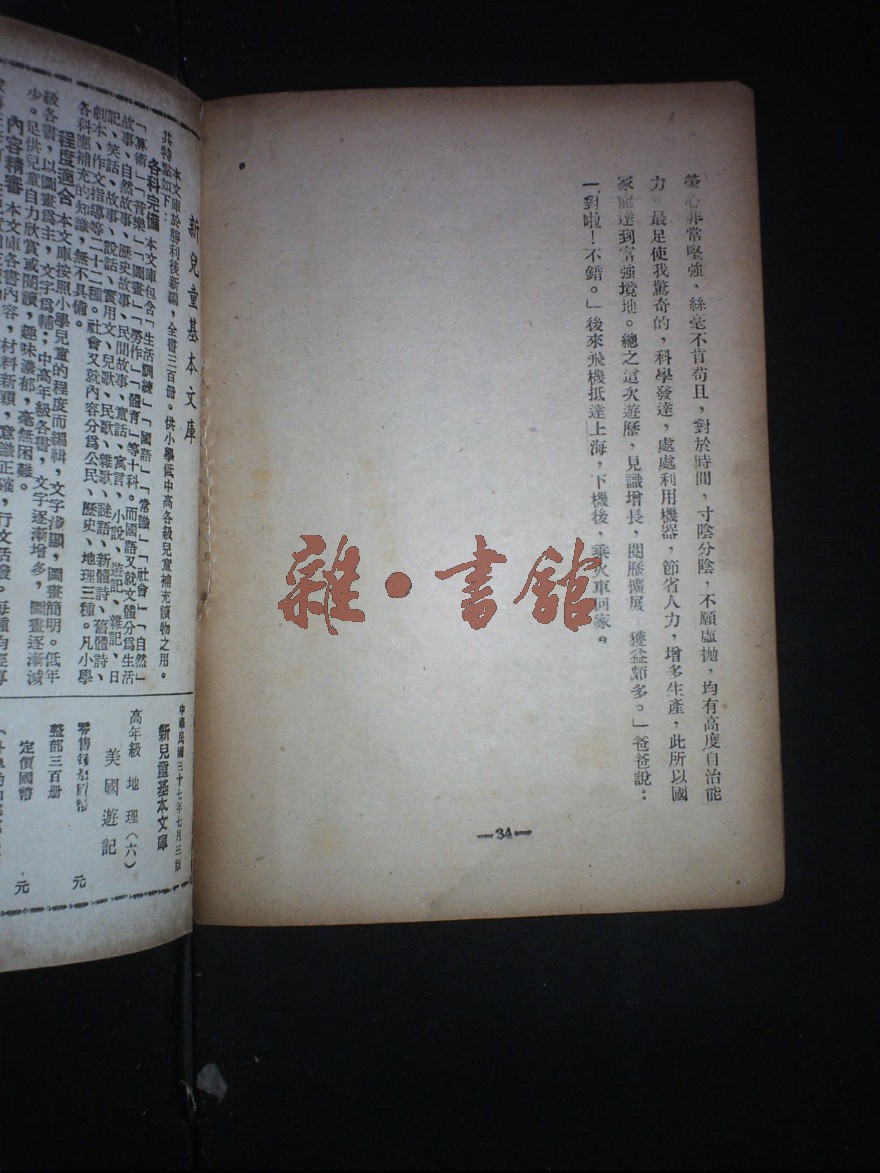 營心非常堅強、絲毫不肯苟且，對於時間，寸陰分陰，不願虛拋，均有高度自治能
力。最足使我驚奇的，科學發達，處處利用機器，節省人力，增多生產，此所以國
家能達到富強境地。總之這次遊歷，見識增長，閱歷擴展 獲益頗多。」爸爸說：
「對啦！不錯。」後來飛機抵達上海，下機後，乘火車回家。
—34—
雜·書館
新兒童基本文庫
本文庫於勝利後新編，全書三百册。供小學低中高各級兒童補充讀物之用。
其特點如下：
各科完備 本文庫包含「生活訓練」「國語」「常識」「社會」「自然」
「算術」「音樂」「圖畫」「勞作」「體育」等十科。而國語又就文體分爲生活
故事、自然故事、歷史故事、民間故事、童話、寓言、小說、遊記、雜記、日
記、笑話、故事、說話、實用文、兒歌、民歌、雜歌、謎語、新體詩、舊體詩、
劇本、作文指導等二十二種。社會又就內容分爲公民、歷史、地理三種。凡小學
各科應補充的知識，無不具備。
程度適合 本文庫按照小學兒童的程度而編輯，文字淺顯，圖畫簡明。低年
級各書，以圖畫爲主，文字爲輔；中高年級各書，文字逐漸增多，圖畫逐漸減
少。足供兒童自力欣賞或閱讀，趣味濃郁，毫無困難。
內容精審 本文庫各書內容，材料新穎，意識正確，行文活潑。每種均經專
中華民國三十七年七月三版
新兒童基本文庫
高年級 地理（六）
美國遊記
零售 國幣 元
整部三百册
定價國幣 元